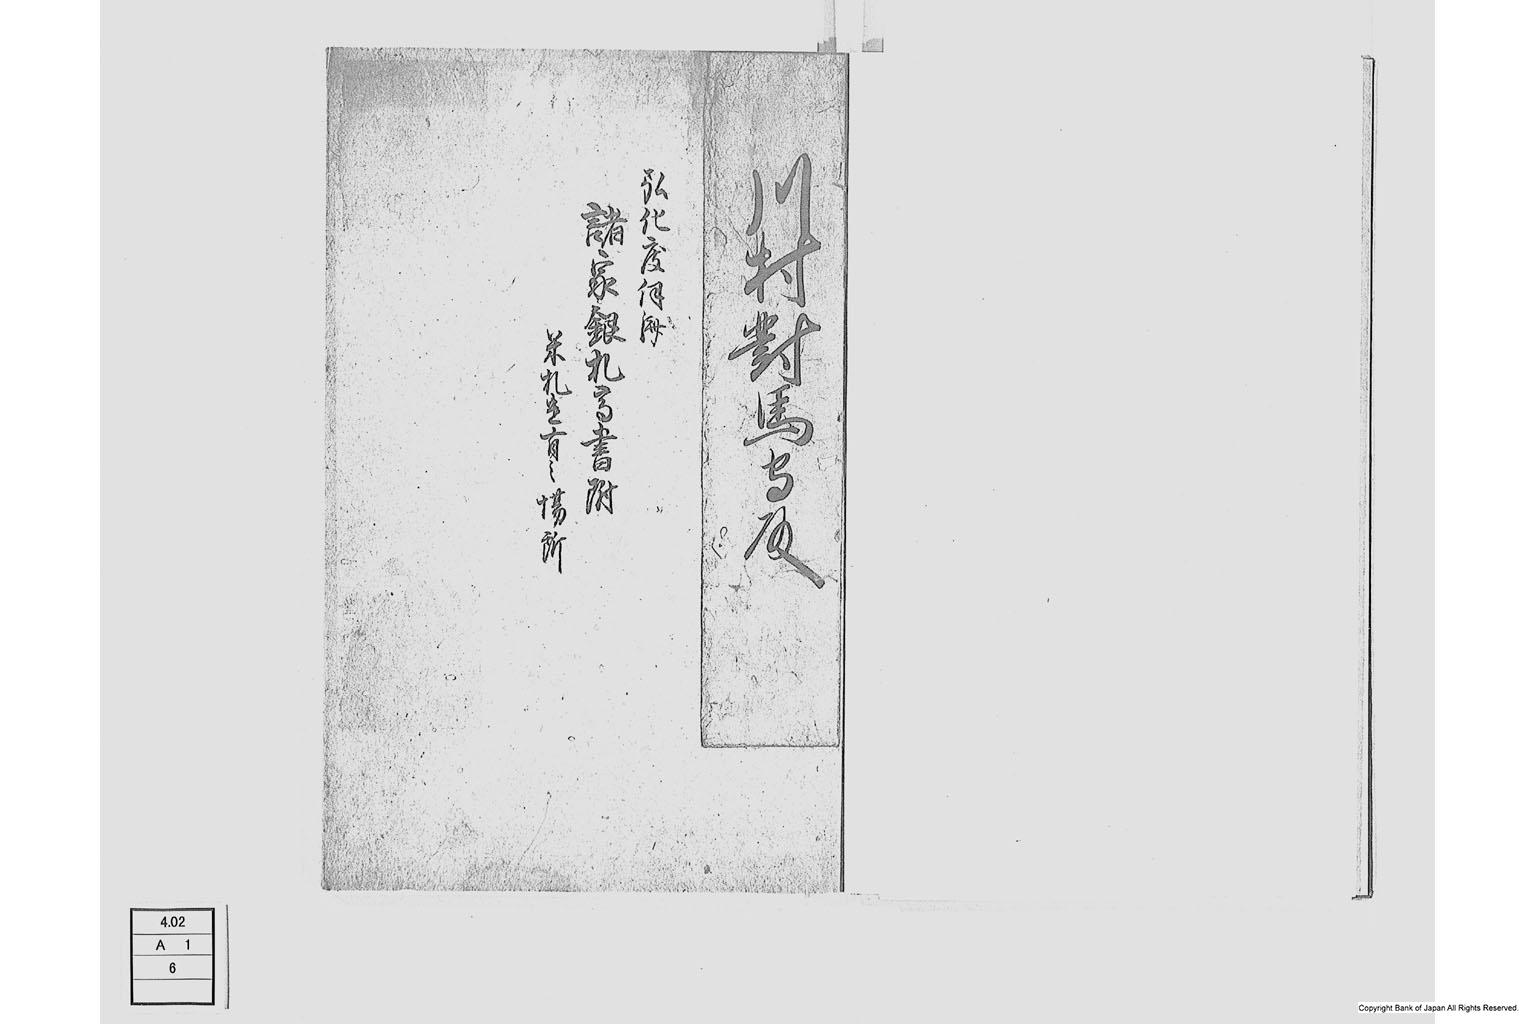 川村對馬守殿
弘化度伺済
諸家銀札高書附
米札生有之場所
4.02
A 1
6
Copyright Bank of Japan All Rights Reserved.